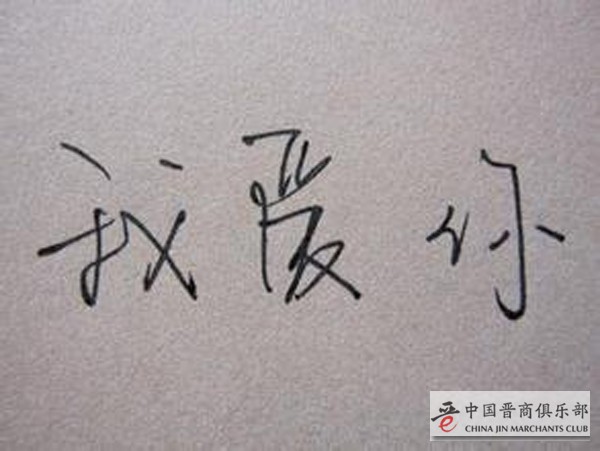 我爱你
中国晋商俱乐部
CHINA JIN MARCHANTS CLUB